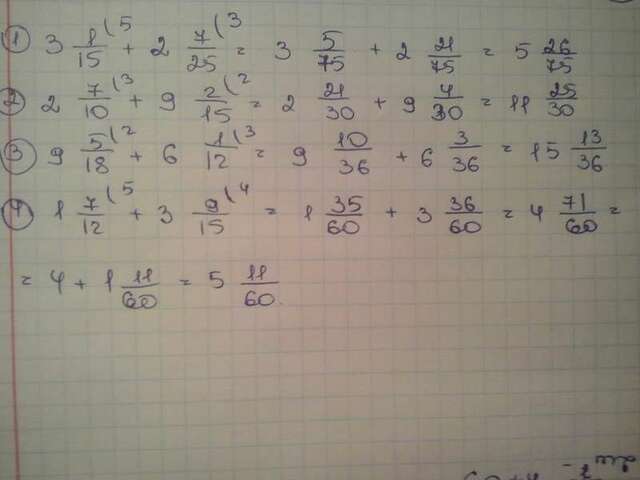 ① 3 1/15 (5 + 2 7/25 (3 = 3 5/75 + 2 21/75 = 5 26/75
② 2 7/10 (3 + 9 2/15 (2 = 2 21/30 + 9 4/30 = 11 25/30
③ 9 5/18 (2 + 6 1/12 (3 = 9 10/36 + 6 3/36 = 15 13/36
④ 1 7/12 (5 + 3 9/15 (4 = 1 35/60 + 3 36/60 = 4 71/60 =
= 4 + 1 11/60 = 5 11/60.